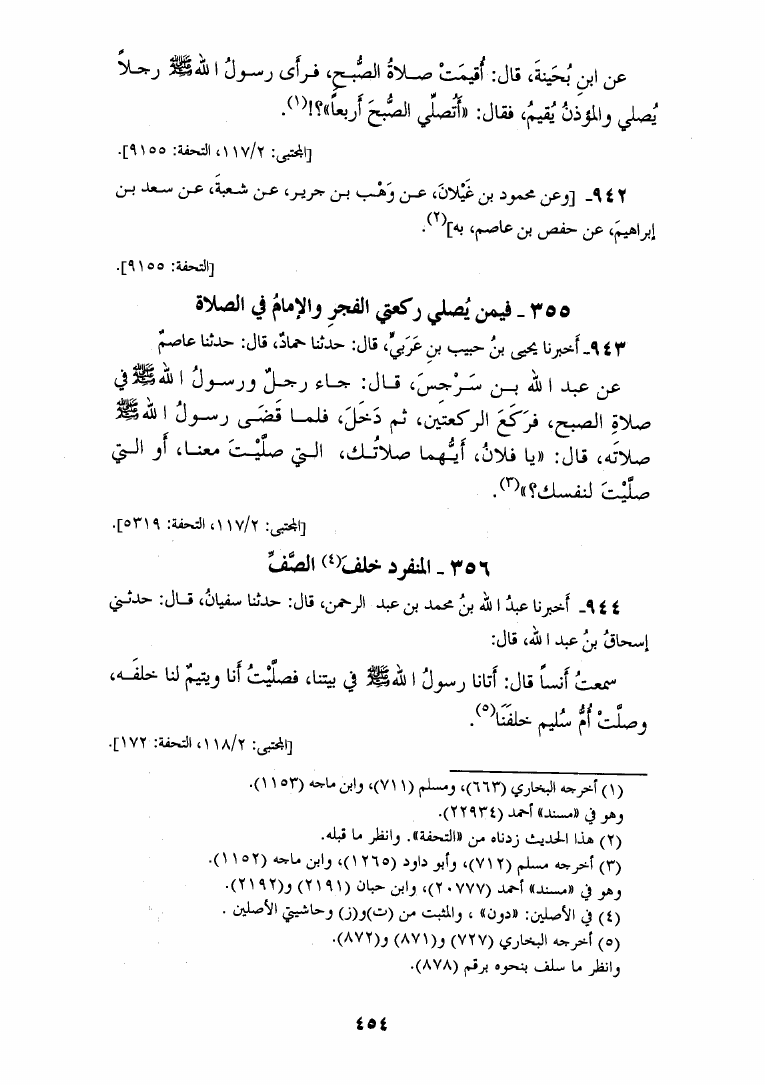 عن ابنِ بُحَينةَ، قال: أُقيمَتْ صلاةُ الصُّبحِ، فرأى رسولُ الله ﷺ رجلاً
يُصلي والمؤذنُ يُقيمُ، فقال: «أَتُصلِّي الصُّبحَ أَربعاً»؟!(١).
[المجتبى: ١١٧/٢، التحفة: ٩١٥٥].
٩٤٢ـ [وعن محمود بن غَيْلانَ، عن وَهْب بن جرير، عن شعبةَ، عن سعد بن
إبراهيمَ، عن حفص بن عاصم، به](٢).
[التحفة: ٩١٥٥].
٣٥٥ ـ فيمن يُصلي ركعتي الفجرِ والإمامُ في الصلاة
٩٤٣ـ أخبرنا يحيى بنُ حبيب بنِ عَرَبيٍّ، قال: حدثنا حمادٌ، قال: حدثنا عاصمٌ
عن عبد الله بن سَرْجِسَ، قال: جاء رجلٌ ورسولُ الله ﷺ في
صلاةِ الصبحِ، فرَكَعَ الركعتين، ثم دَخَلَ، فلما قَضَى رسولُ الله ﷺ
صلاتَه، قال: «يا فلانُ، أَيُّهما صلاتُك، التي صلَّيْتَ معنا، أو التي
صلَّيْتَ لنفسك؟»(٣).
[المجتبى: ١١٧/٢، التحفة: ٥٣١٩].
٣٥٦ ـ المنفرد خلفَ(٤) الصَّفِّ
٩٤٤ـ أخبرنا عبدُ الله بنُ محمد بن عبد الرحمن، قال: حدثنا سفيانُ، قال: حدثني
إسحاقُ بنُ عبد الله، قال:
سمعتُ أنساً قال: أَتانا رسولُ الله ﷺ في بيتنا، فصلَّيْتُ أنا ويتيمٌ لنا خلفَه،
وصلَّتْ أُمُّ سُليم خلفَنَا(٥).
[المجتبى: ١١٨/٢، التحفة: ١٧٢].
(١) أخرجه البخاري (٦٦٣)، ومسلم (٧١١)، وابن ماجه (١١٥٣).
وهو في «مسند» أحمد (٢٢٩٣٤).
(٢) هذا الحديث زدناه من «التحفة». وانظر ما قبله.
(٣) أخرجه مسلم (٧١٢)، وأبو داود (١٢٦٥)، وابن ماجه (١١٥٢).
وهو في «مسند» أحمد (٢٠٧٧٧)، وابن حبان (٢١٩١) و(٢١٩٢).
(٤) في الأصلين: «دون» ، والمثبت من (ت)و(ز) وحاشيتي الأصلين .
(٥) أخرجه البخاري (٧٢٧) و(٨٧١) و(٨٧٢).
وانظر ما سلف بنحوه برقم (٨٧٨).
٤٥٤